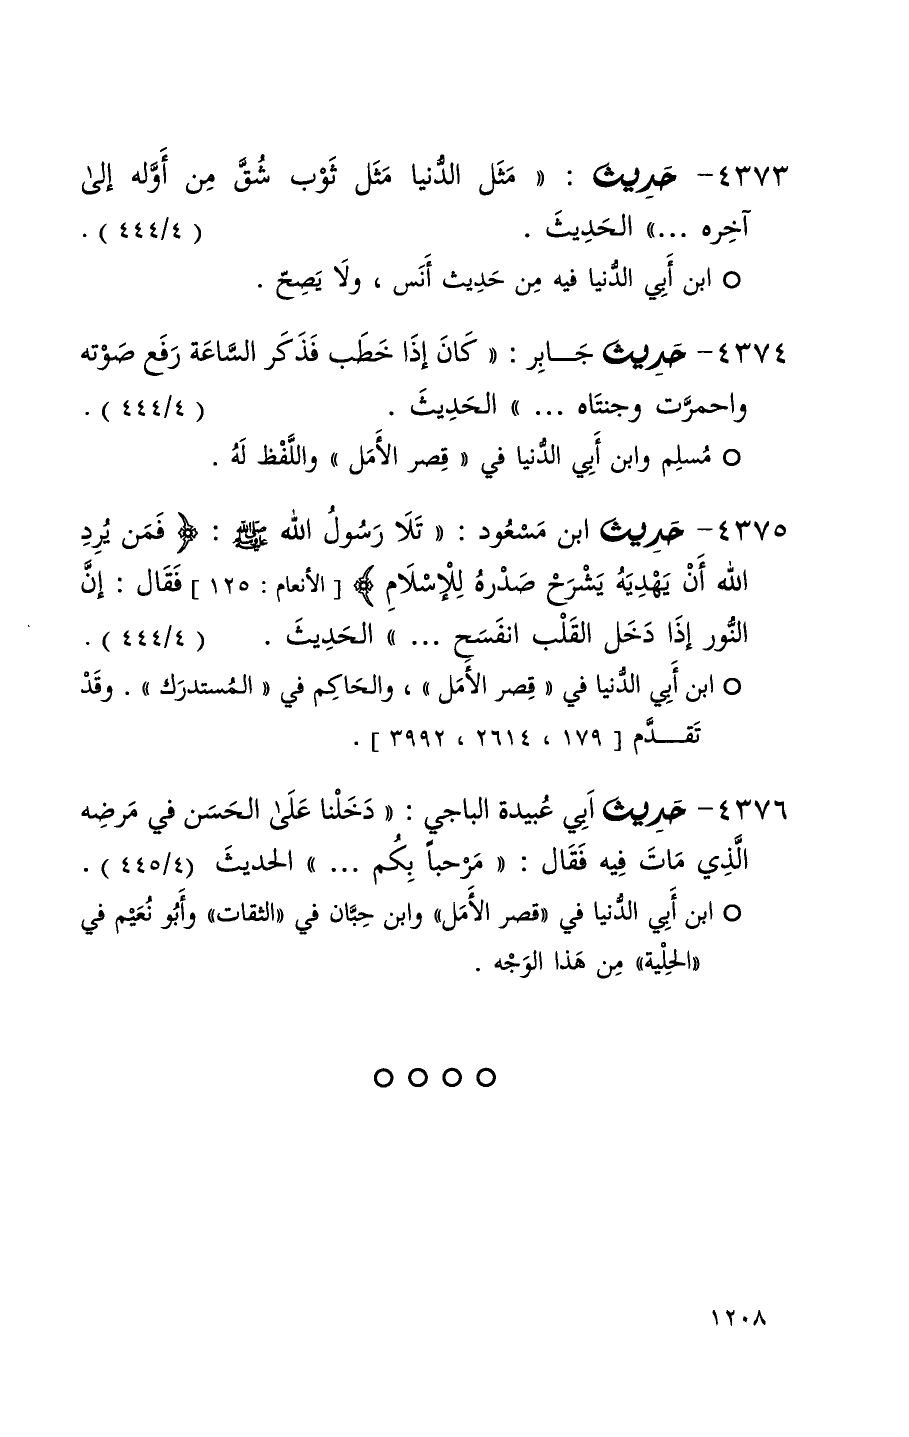 ٤٣٧٣- حَدِيث : « مَثَل الدُّنيا مَثَل ثَوْب شُقَّ مِن أَوَّله إلىٰ
آخِره ...» الحَدِيثَ . ( ٤٤٤/٤ ) .
○ ابن أَبِي الدُّنيا فيه مِن حَدِيث أَنَس ، ولَا يَصِحّ .
٤٣٧٤- حَدِيث جَـــابِر : « كَانَ إذَا خَطَب فَذَكَر السَّاعَة رَفَع صَوْته
واحمرَّت وجنتَاه ... » الحَدِيثَ . ( ٤٤٤/٤ ) .
○ مُسلِم وابن أَبِي الدُّنيا في « قِصر الأَمَل » واللَّفْظ لَهُ .
٤٣٧٥- حَدِيث ابن مَسْعُود : « تَلَا رَسُولُ الله ﷺ : ﴿ فَمَن يُرِدِ
الله أَنْ يَهْدِيَهُ يَشْرَحْ صَدْرهُ لِلْإسْلَامِ ﴾ [ الأنعام : ١٢٥ ] فَقَال : إنَّ
النُّور إذَا دَخَل القَلْب انفَسَح ... » الحَدِيثَ . ( ٤٤٤/٤ ) .
○ ابن أَبِي الدُّنيا في « قِصر الأَمَل » ، والحَاكِم في « المُستدرَك » . وقَدْ
تَقــــدَّم [ ١٧٩ ، ٢٦١٤ ، ٣٩٩٢ ] .
٤٣٧٦- حَدِيث أَبِي عُبيدة الباجي : « دَخَلْنا عَلَىٰ الحَسَن في مَرضِه
الَّذِي مَاتَ فِيه فَقَال : « مَرْحباً بِكُم ... » الحديثَ (٤٤٥/٤ ) .
○ ابن أَبِي الدُّنيا في «قصر الأَمَل» وابن حِبَّان في «الثقات» وأَبُو نُعَيْم في
«الحِلْية» مِن هَذا الوَجْه .
○ ○ ○ ○
١٢٠٨